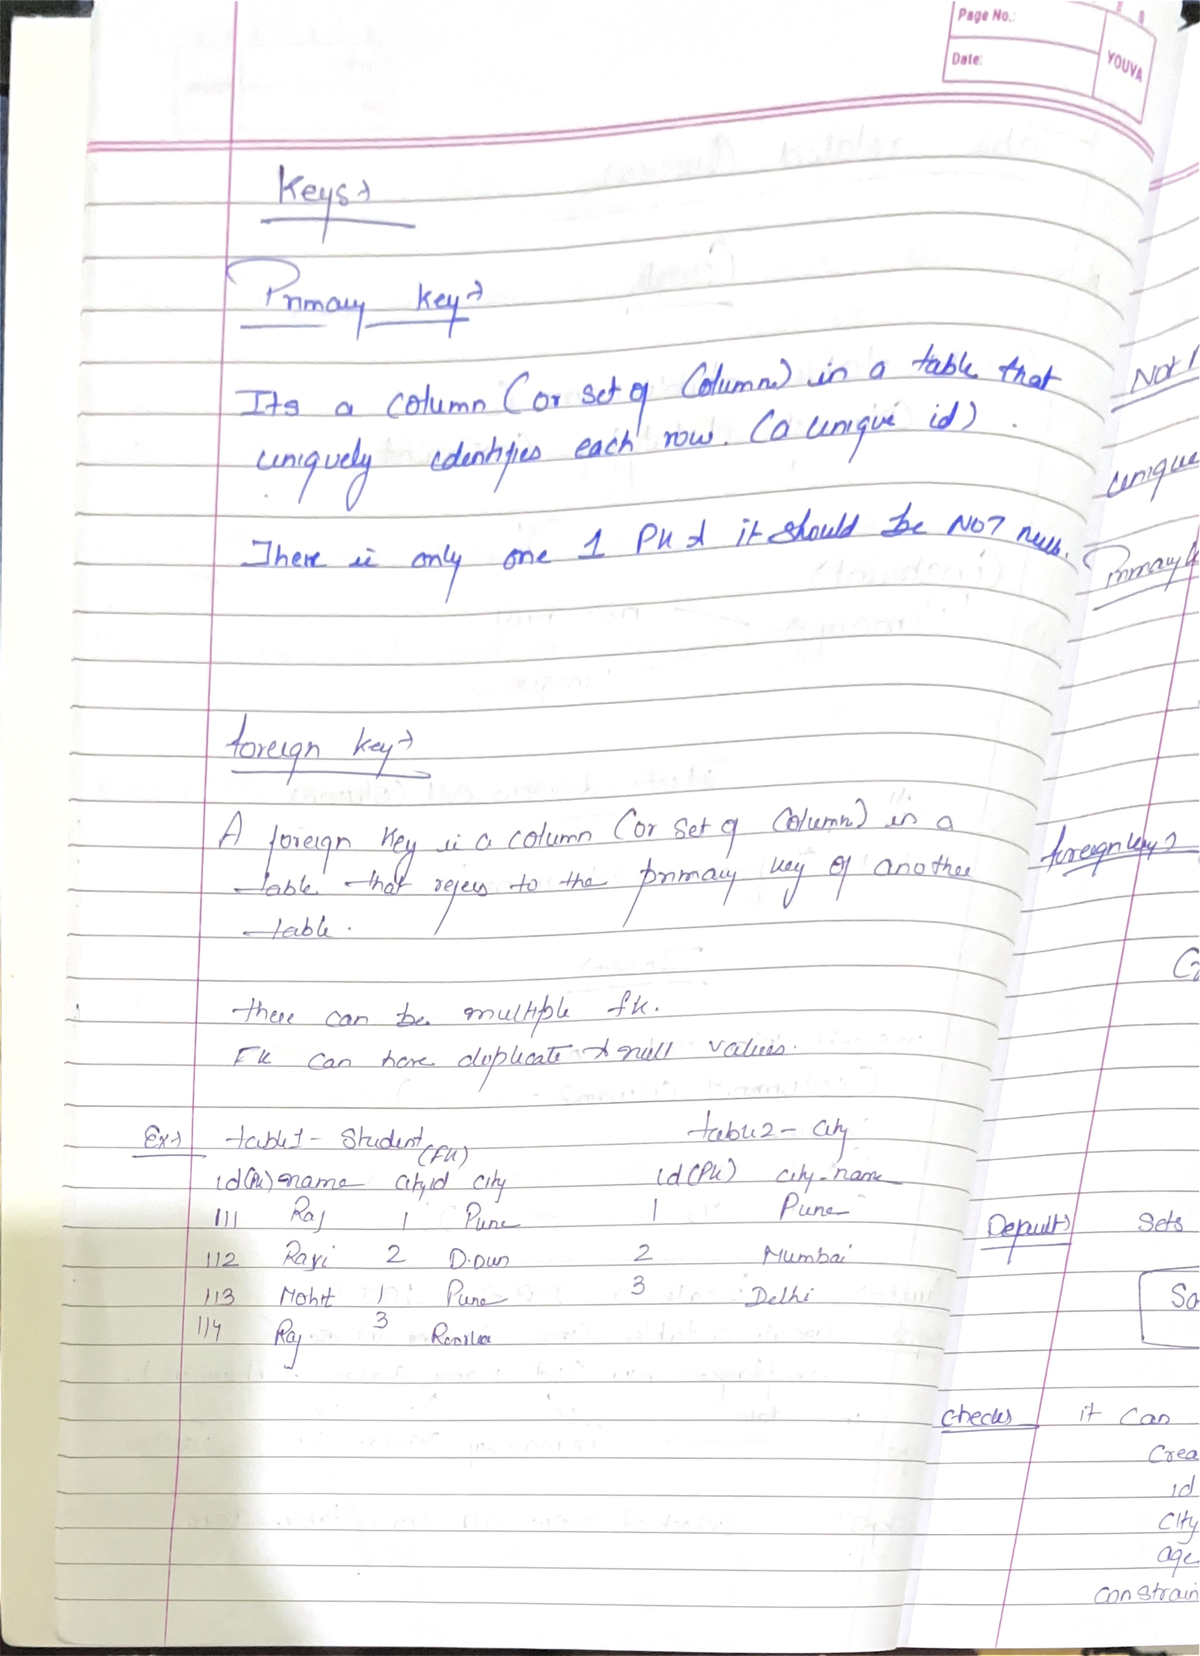 Page No.:
Date:
YOUVA
Keys→
Primary key→
Its a column (or set of columns) in a table that
uniquely identifies each row. (a unique id)
There is only one 1 PK & it should be NOT null.
foreign key→
A foreign key is a column (or set of column) in a
table that refers to the primary key of another
table.
there can be multiple fk.
FK can have duplicate & null values.
Ex→ table1 - Student table2 - city
id(PK) name cityid (FK) city id(PK) city-name
111 Raj 1 Pune 1 Pune
112 Ravi 2 D.Dun 2 Mumbai
113 Mohit 1 Pune 3 Delhi
114 Raj 3
Not
unique
Primary
foreign key→
Default→ Sets
checks it can
Crea
id
City
age
constrain